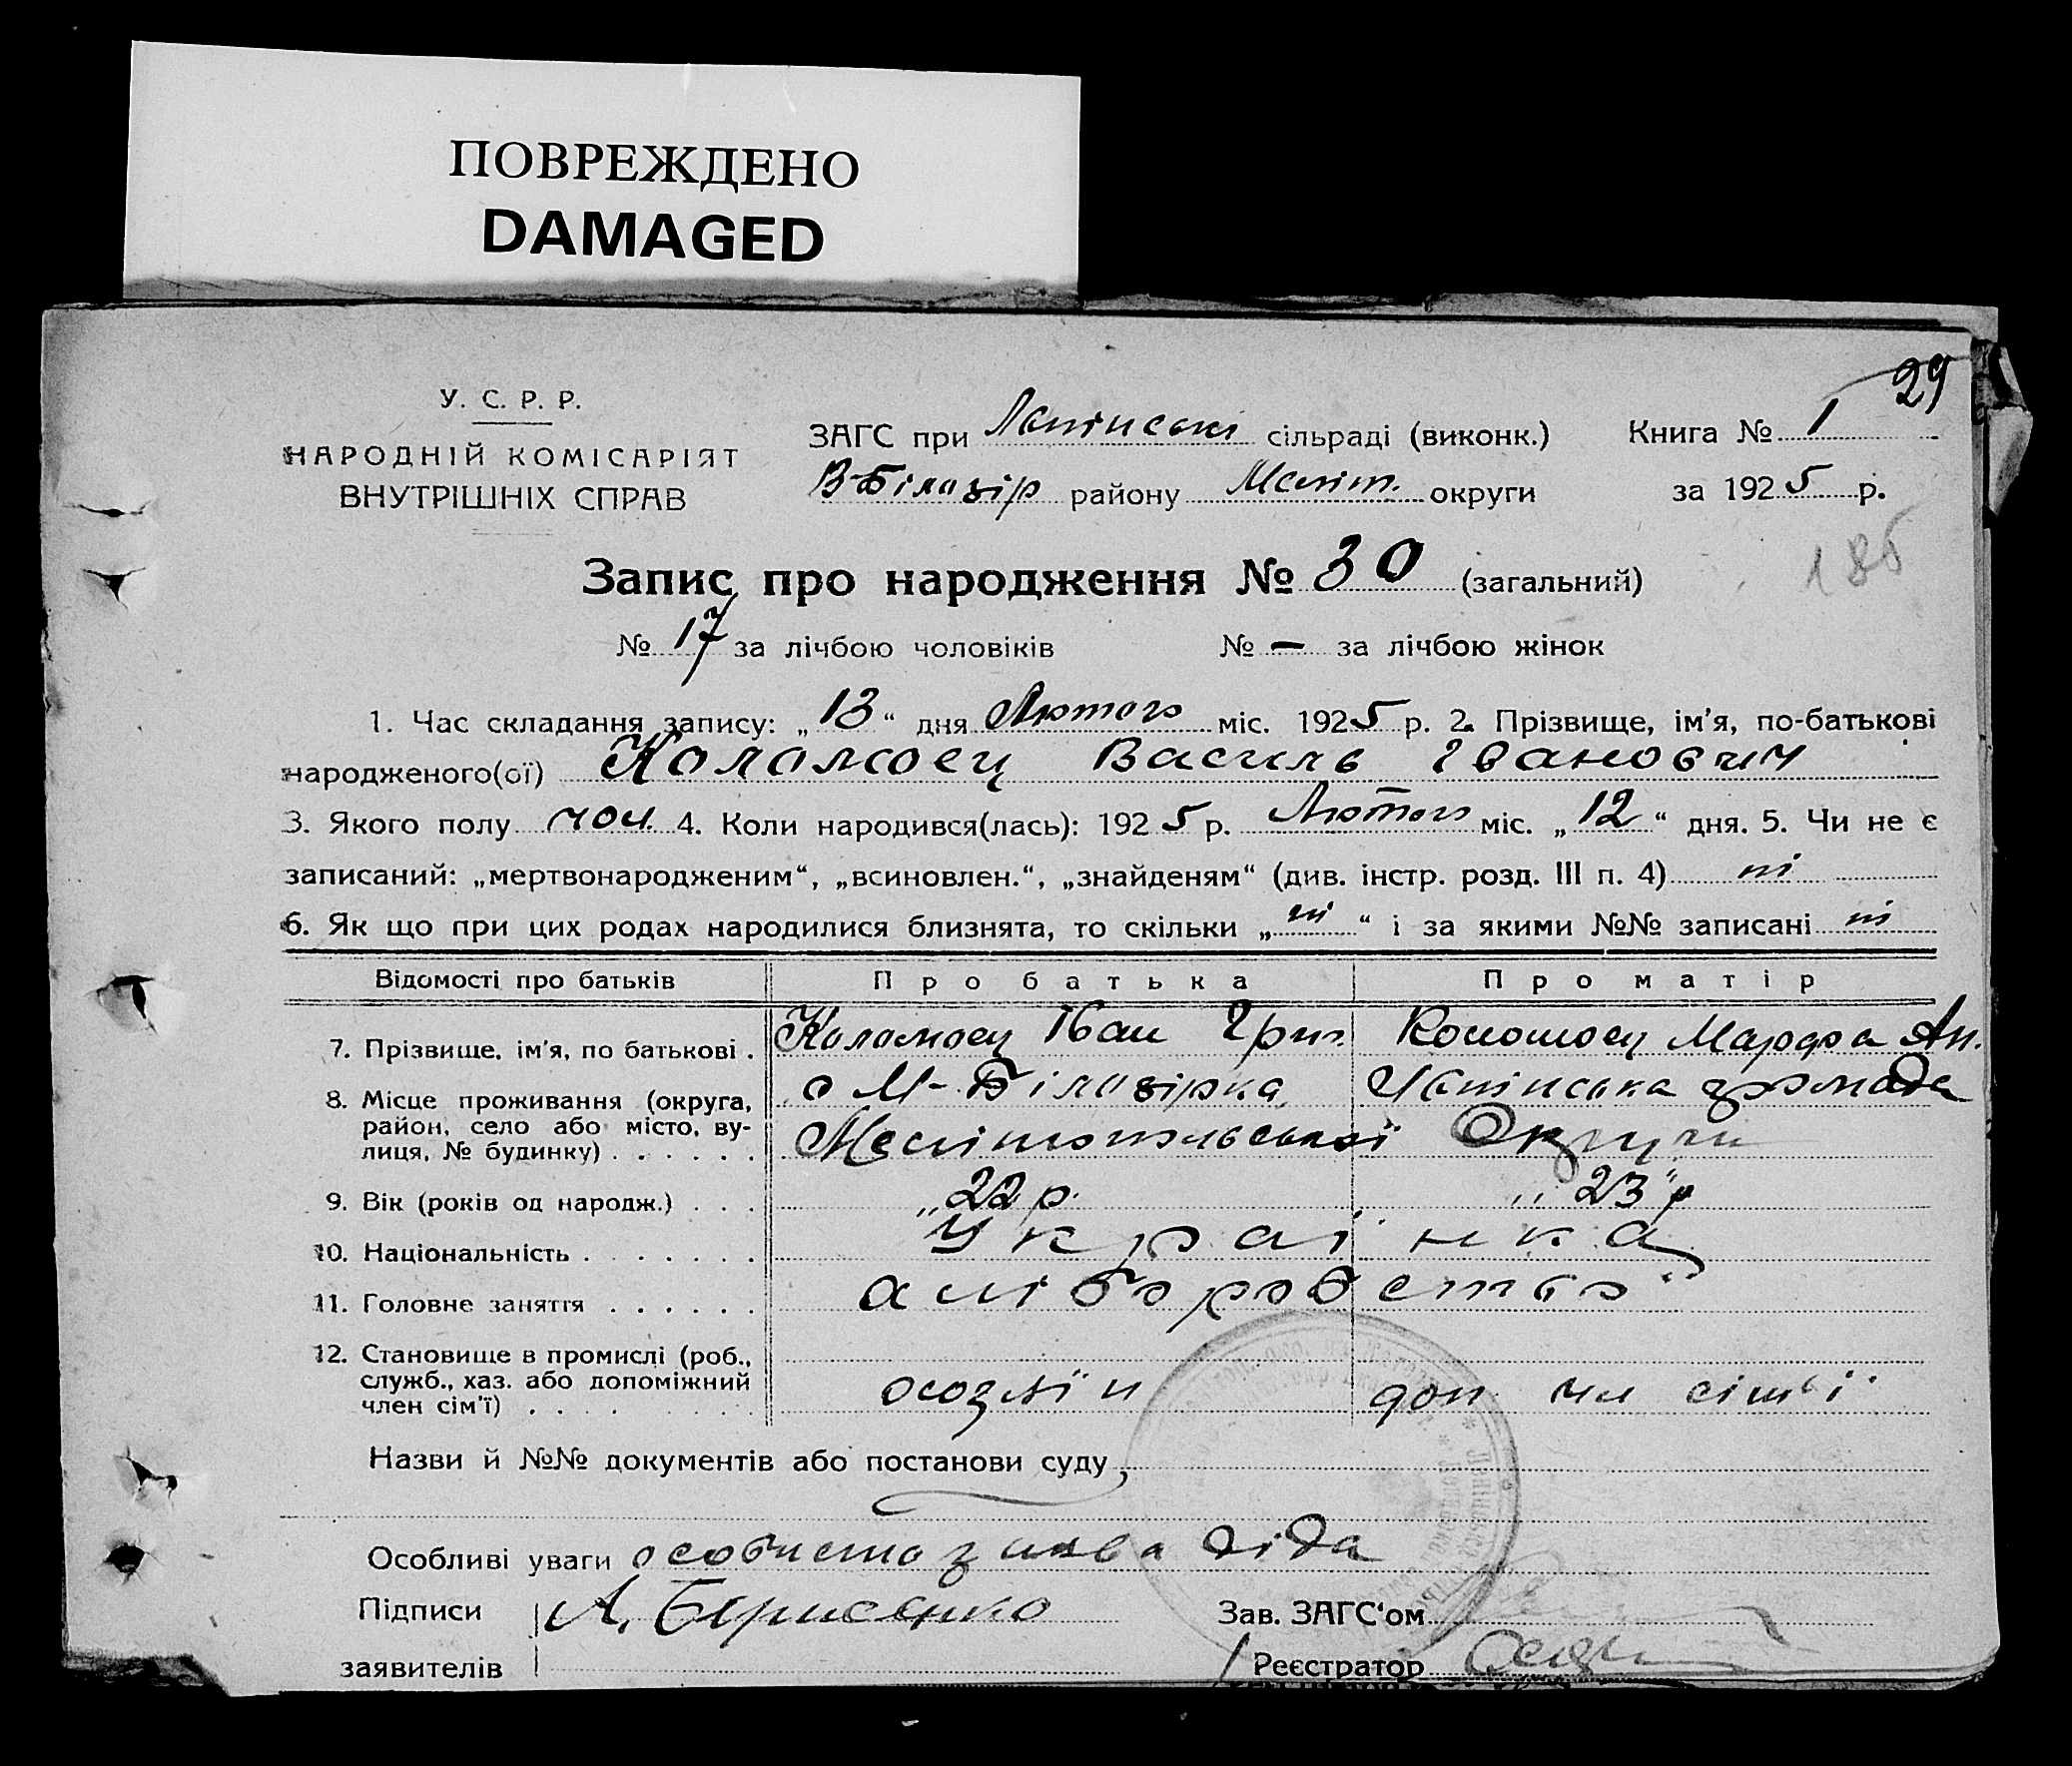 ПОВРЕЖДЕНО
DAMAGED
29
У. С. Р. Р.
НАРОДНІЙ КОМІСАРІЯТ
ВНУТРІШНІХ СПРАВ
ЗАГС при сільраді (виконк.) Книга № 1
В-Білозір району Меліт. округи за 1925 р.
185
Запис про народження № 30 (загальний)
№ 17 за лічбою чоловіків № — за лічбою жінок
1. Час складання запису: „13“ дня Лютого міс. 1925 р. 2. Прізвище, ім'я, по-батькові
народженого(ої) Коломоец Василь Іванович
3. Якого полу чол. 4. Коли народився(лась): 1925 р. Лютого міс. „12“ дня. 5. Чи не є
записаний: „мертвонародженим“, „всиновлен.“, „знайденям“ (див. інстр. розд. III п. 4) ні
6. Як що при цих родах народилися близнята, то скільки „ні“ і за якими №№ записані ні
Відомості про батьків Про батька Про матір
7. Прізвище, ім'я, по батькові . Коломоец Іван Григ. Коломоец Марфа Ан.
8. Місце проживання (округа, район, село або місто, вулиця, № будинку) . . . . . . с М-Білозірка громада
Мелітопольської Округи
9. Вік (років од народж.) . . . „22 р. „23" р
10. Національність . . . . . . . Українка
11. Головне заняття . . . . . . хліборобство
12. Становище в промислі (роб., служб., хаз. або допоміжний член сім'ї) . . . . хозяїн доп чл сім'ї
Назви й №№ документів або постанови суду
Особливі уваги особисто заява діда
Підписи Зав. ЗАГС'ом
заявителів Реєстратор